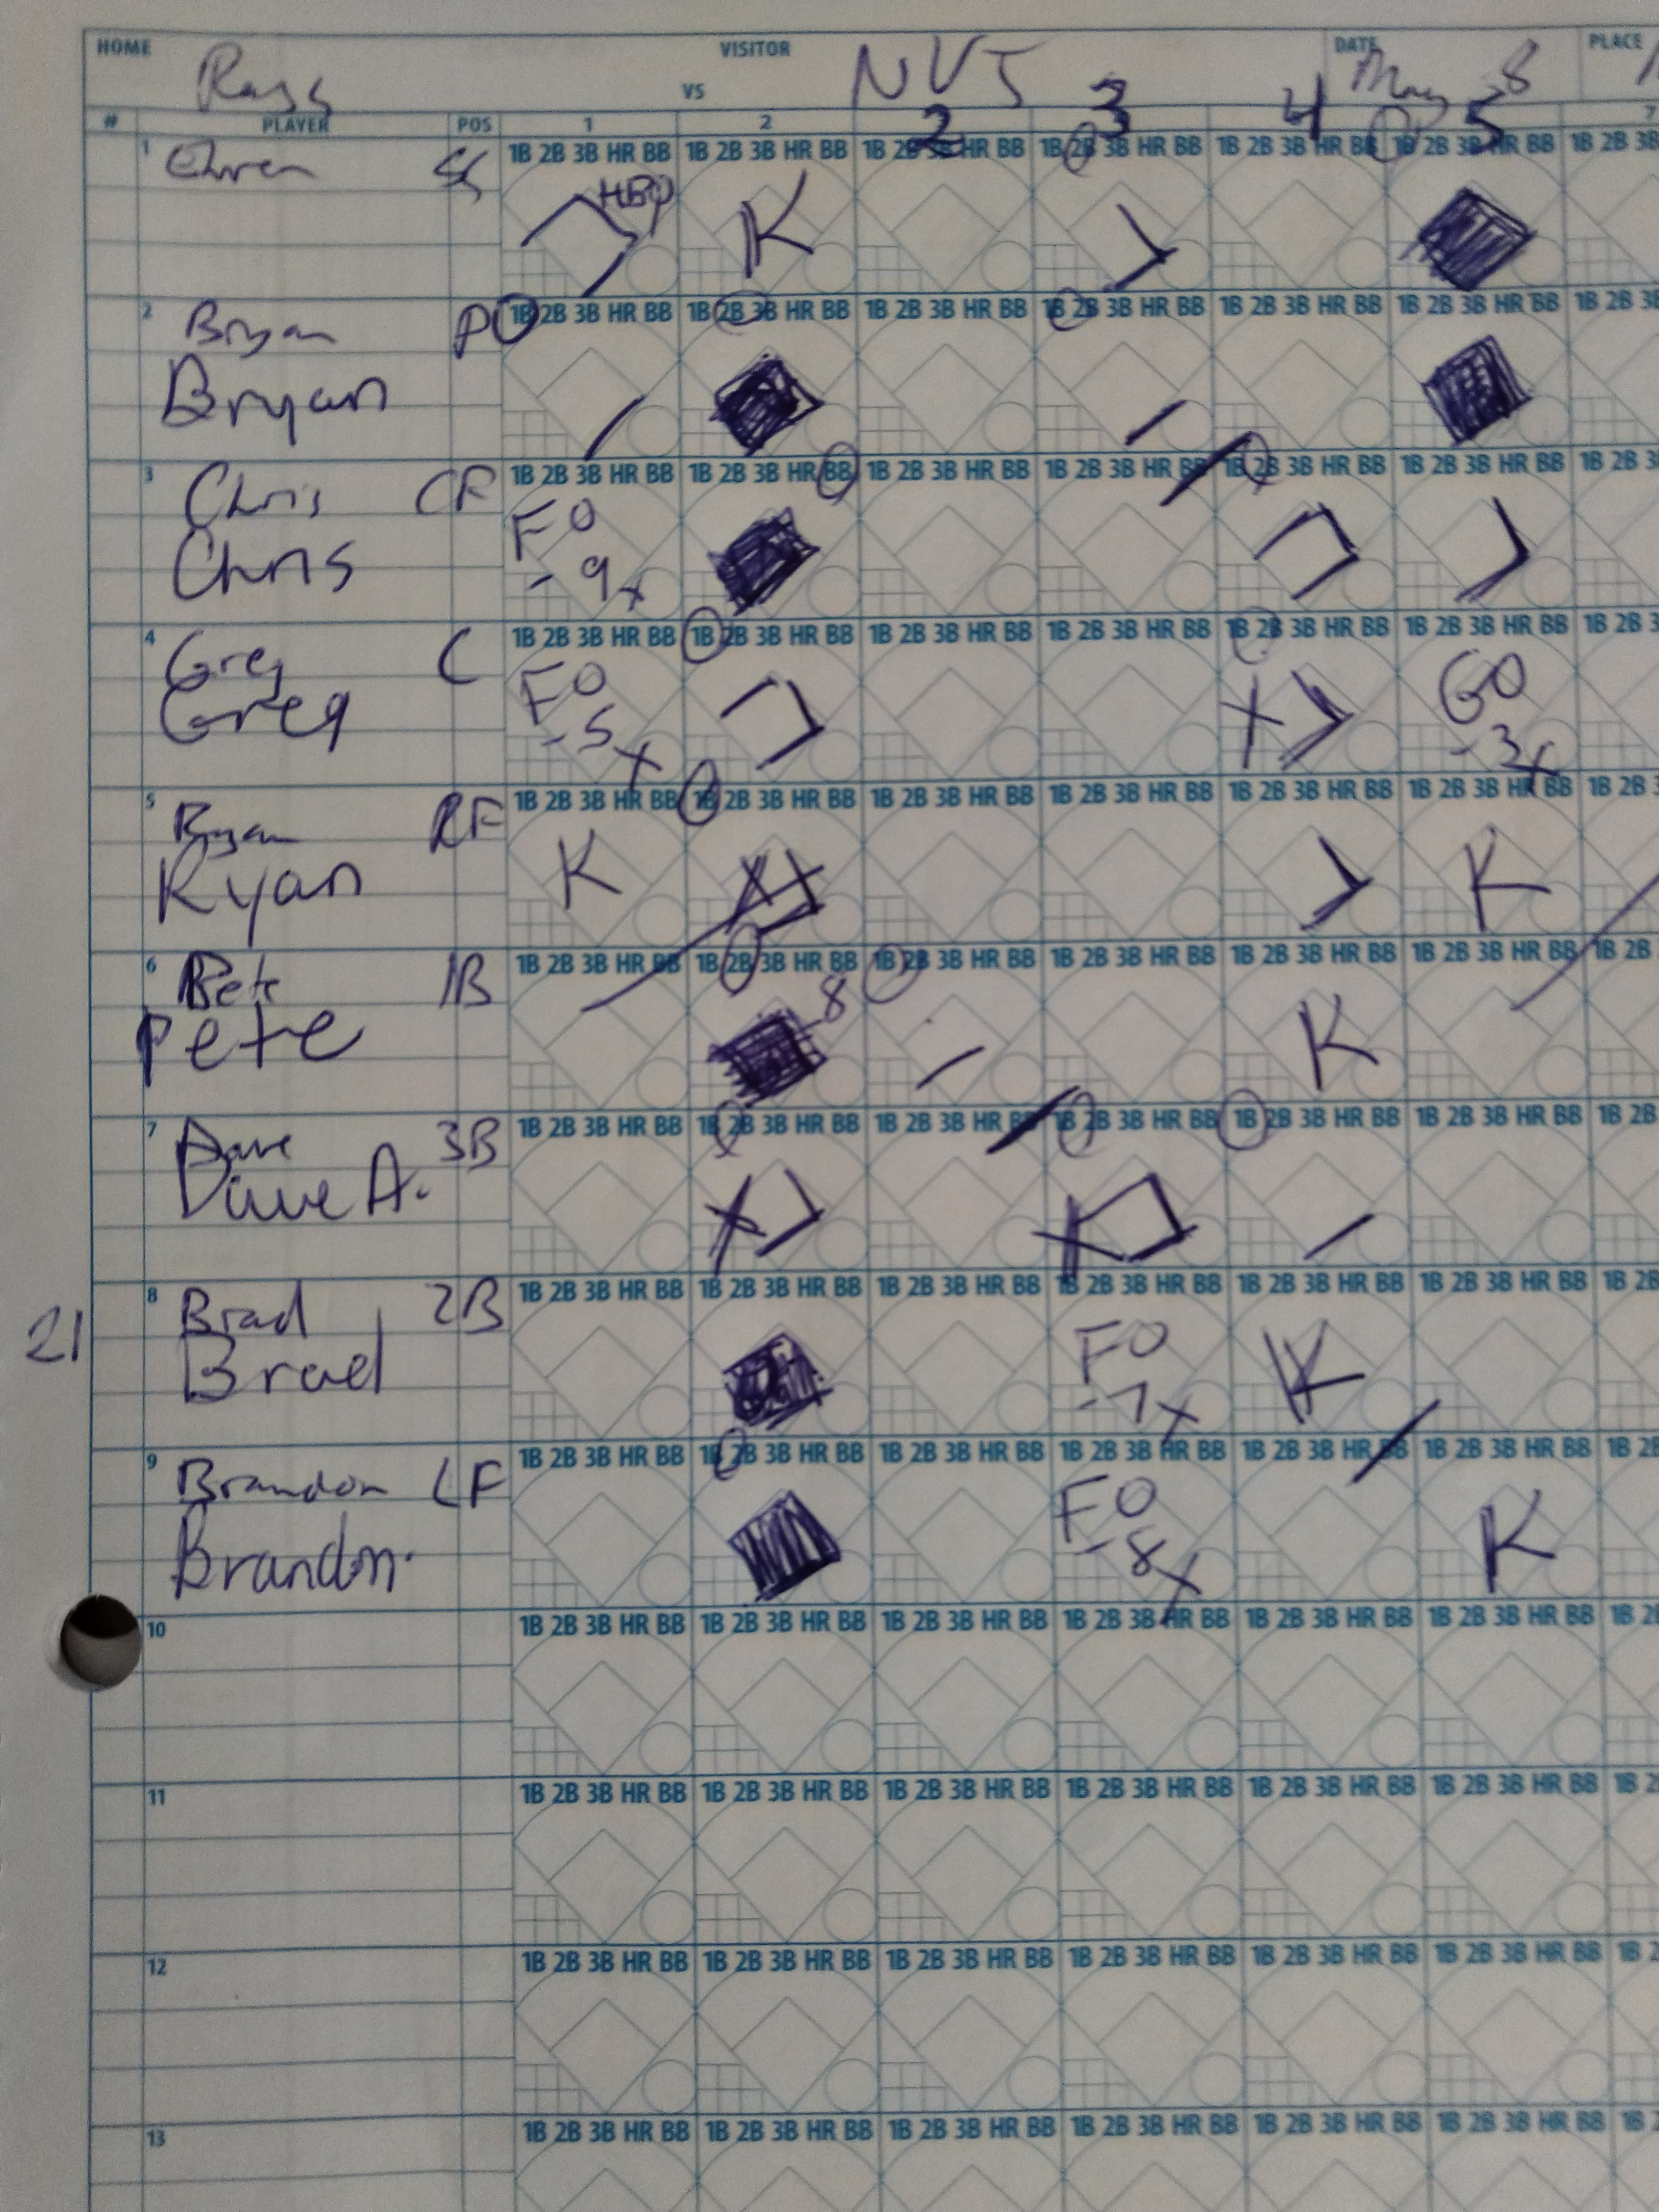 HOME VISITOR DATE PLACE
Rays VS NVJ May 8
# PLAYER POS 1 2 2 3 4 5 7
1 SS 1B 2B 3B HR BB 1B 2B 3B HR BB 1B 2B 3B HR BB 1B 2B 3B HR BB 1B 2B 3B HR BB 1B 2B 3B HR BB 1B 2B 3B
HBP K
2 Bryan P 1B 2B 3B HR BB 1B 2B 3B HR BB 1B 2B 3B HR BB 1B 2B 3B HR BB 1B 2B 3B HR BB 1B 2B 3B HR BB 1B 2B 3B
Bryan
3 Chris CF 1B 2B 3B HR BB 1B 2B 3B HR BB 1B 2B 3B HR BB 1B 2B 3B HR BB 1B 2B 3B HR BB 1B 2B 3B HR BB 1B 2B 3
Chris FO - 9 x
4 Greg C 1B 2B 3B HR BB 1B 2B 3B HR BB 1B 2B 3B HR BB 1B 2B 3B HR BB 1B 2B 3B HR BB 1B 2B 3B HR BB 1B 2B 3
Greg FO - 5 x X GO - 3 x
5 RF 1B 2B 3B HR BB 1B 2B 3B HR BB 1B 2B 3B HR BB 1B 2B 3B HR BB 1B 2B 3B HR BB 1B 2B 3B HR BB 1B 2B
Ryan K X K
6 Pete 1B 1B 2B 3B HR BB 1B 2B 3B HR BB 1B 2B 3B HR BB 1B 2B 3B HR BB 1B 2B 3B HR BB 1B 2B 3B HR BB 1B 2B
Pete 8 K
7 Dave 3B 1B 2B 3B HR BB 1B 2B 3B HR BB 1B 2B 3B HR BB 1B 2B 3B HR BB 1B 2B 3B HR BB 1B 2B 3B HR BB 1B 2B
Dave A. X X
8 Brad 2B 1B 2B 3B HR BB 1B 2B 3B HR BB 1B 2B 3B HR BB 1B 2B 3B HR BB 1B 2B 3B HR BB 1B 2B 3B HR BB 1B 2B
21 Brad FO - 7 x K
9 Brandon LF 1B 2B 3B HR BB 1B 2B 3B HR BB 1B 2B 3B HR BB 1B 2B 3B HR BB 1B 2B 3B HR BB 1B 2B 3B HR BB 1B 2B
Brandon FO - 8 x K
10 1B 2B 3B HR BB 1B 2B 3B HR BB 1B 2B 3B HR BB 1B 2B 3B HR BB 1B 2B 3B HR BB 1B 2B 3B HR BB 1B
11 1B 2B 3B HR BB 1B 2B 3B HR BB 1B 2B 3B HR BB 1B 2B 3B HR BB 1B 2B 3B HR BB 1B 2B 3B HR BB 1B
12 1B 2B 3B HR BB 1B 2B 3B HR BB 1B 2B 3B HR BB 1B 2B 3B HR BB 1B 2B 3B HR BB 1B 2B 3B HR BB 1B
13 1B 2B 3B HR BB 1B 2B 3B HR BB 1B 2B 3B HR BB 1B 2B 3B HR BB 1B 2B 3B HR BB 1B 2B 3B HR BB 1B